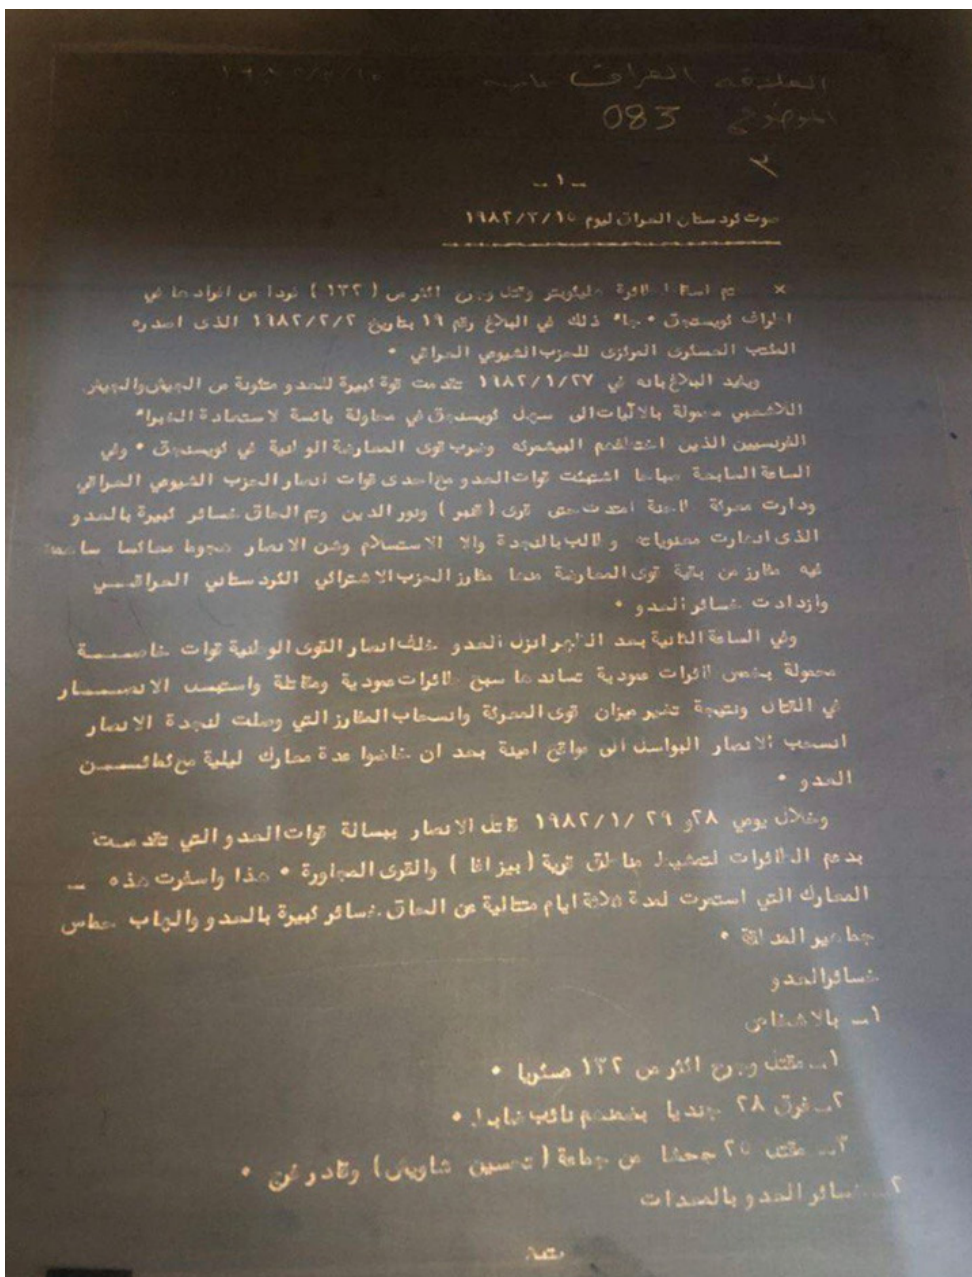 العراق
083
- ١ -
صوت كردستان العراق ليوم ١٩٨٢/٢/١٥
× تم اسقاط طائرة هليكوبتر وقتل وجرح اكثر من ( ١٣٢ ) فردا من افرادها في
اطراف كويسنجق • جاء ذلك في البلاغ رقم ١٩ بتاريخ ١٩٨٢/٢/٢ الذى اصدره
المكتب العسكرى المركزى للحزب الشيوعي العراقي •
ويفيد البلاغ بانه في ١٩٨٢/١/٢٧ تقدمت قوة كبيرة للعدو متكونة من الجيش والجيش
اللاشعبي محمولة بالآليات الى سهل كويسنجق في محاولة يائسة لاستعادة الخبراء
الفرنسيين الذين اختطفهم البيشمركه وضرب قوى المعارضة الوطنية في كويسنجق • وفي
الساعة السابعة صباحا اشتبكت قوات العدو مع احدى قوات انصار الحزب الشيوعي العراقي
ودارت معركة طاحنة امتدت حتى قرى ( قمبر ) ونور الدين وتم الحاق خسائر كبيرة بالعدو
الذى انهارت معنوياته وطالب بالنجدة والا الاستسلام وشن الانصار هجوما معاكسا ساهمت
فيه مفارز من بقية قوى المعارضة منها مفارز الحزب الاشتراكي الكردستاني العراقـــي
وازدادت خسائر العدو •
وفي الساعة الثانية بعد الظهر انزل العدو خلف انصار القوى الوطنية قوات خاصـــــة
محمولة بخمس طائرات عمودية تساندها سبع طائرات عمودية ومقاتلة واستبسل الانصـــار
في القتال ونتيجة تغير ميزان قوى المعركة وانسحاب المفارز التي وصلت لنجدة الانصار
انسحب الانصار البواسل الى مواقع امينة بعد ان خاضوا عدة معارك ليلية مع كمائـــن
العدو •
وخلال يومي ٢٨ و ٢٩ /١٩٨٢/١ قاتل الانصار ببسالة قوات العدو التي تقدمـــت
بدعم الطائرات لتمشيط مناطق قرية ( بيزاقا ) والقرى المجاورة • هذا واسفرت هذه ــ
المعارك التي استمرت لمدة ثلاثة ايام متتالية عن الحاق خسائر كبيرة بالعدو والهاب حماس
جماهير المنطقة •
خسائر العدو
١ــ بالاشخاص
١ــ مقتل وجرح اكثر من ١٣٢ عسكريا •
٢ــ غرق ٢٨ جنديا بضمنهم نائب ضابط •
٣ــ مقتل ٢٥ جحشا من جماعة ( تحسين شاويش ) وقادر
٢ــ خسائر العدو بالمعدات